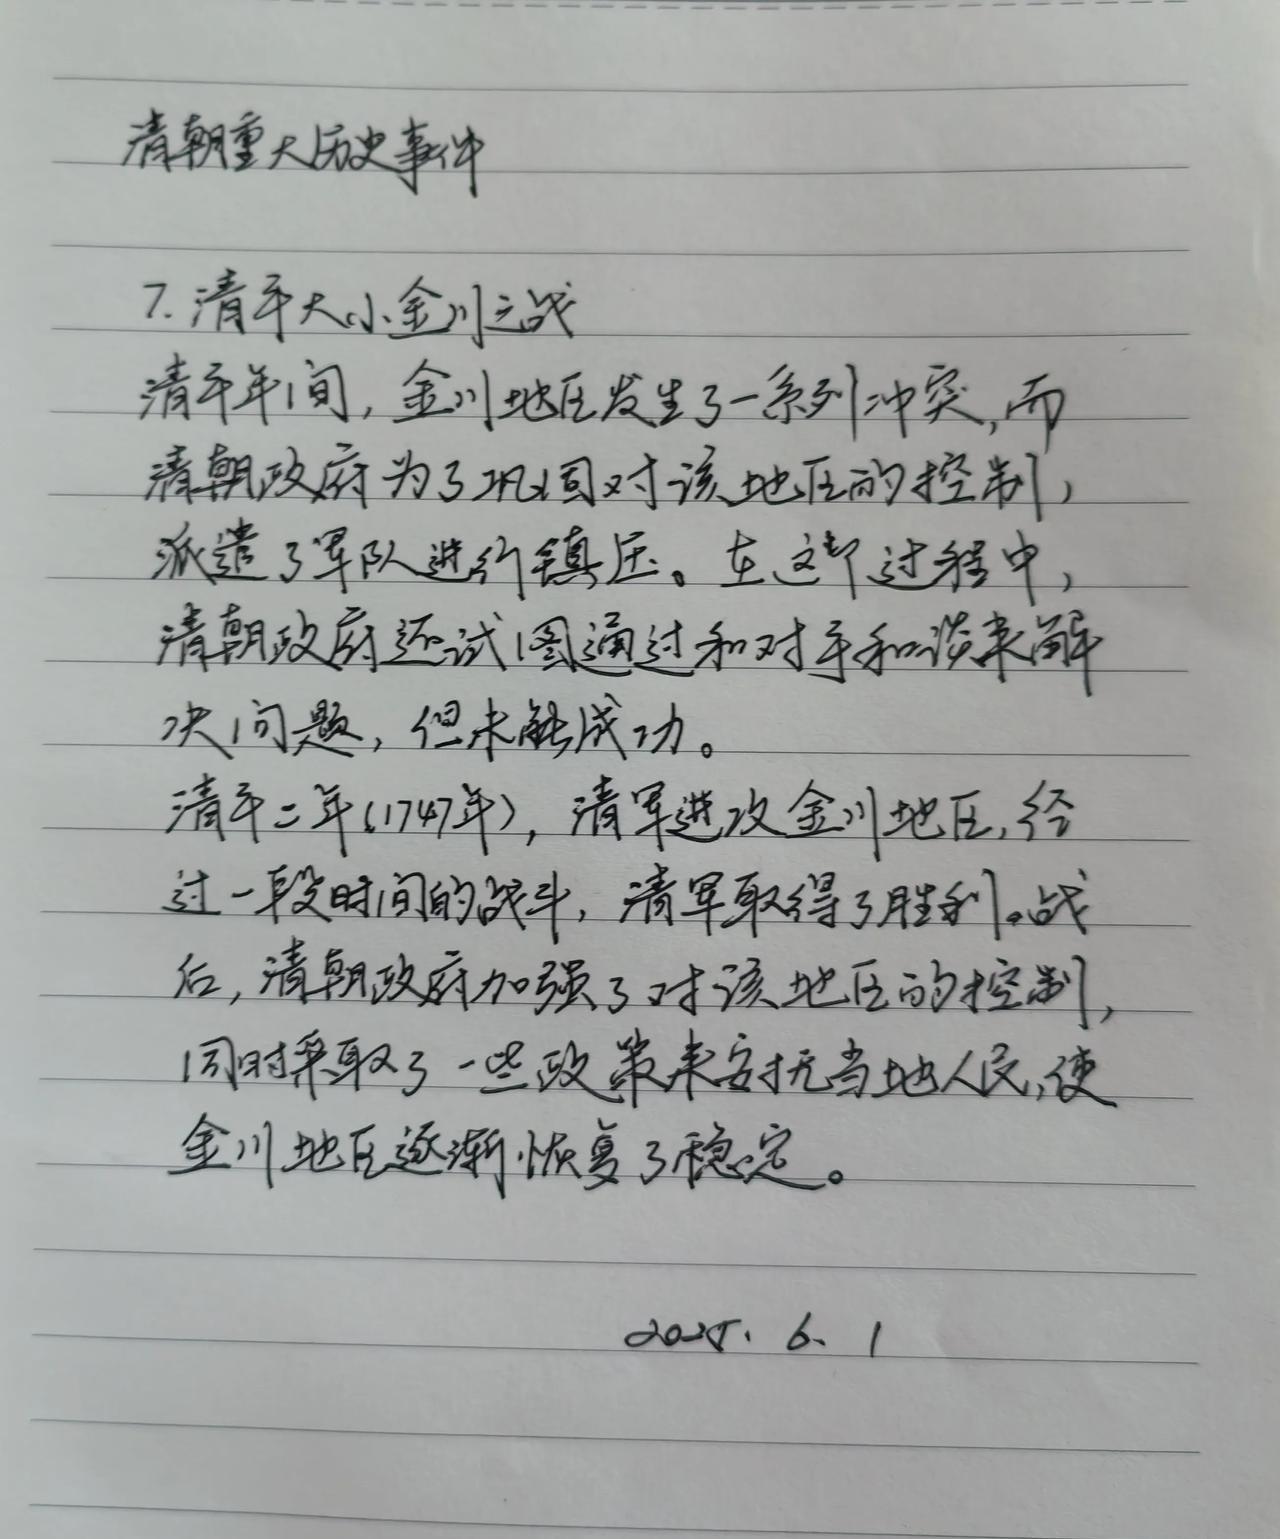 清朝重大历史事件
7.清平大小金川之战
清平年间,金川地区发生了一系列冲突,而
清朝政府为了巩固对该地区的控制,
派遣了军队进行镇压。在这个过程中,
清朝政府还试图通过和对手和谈来解
决问题,但未能成功。
清平二年(1747年),清军进攻金川地区,经
过一段时间的战斗,清军取得了胜利。战
后,清朝政府加强了对该地区的控制,
同时采取了一些政策来安抚当地人民,使
金川地区逐渐恢复了稳定。
2025.6.1